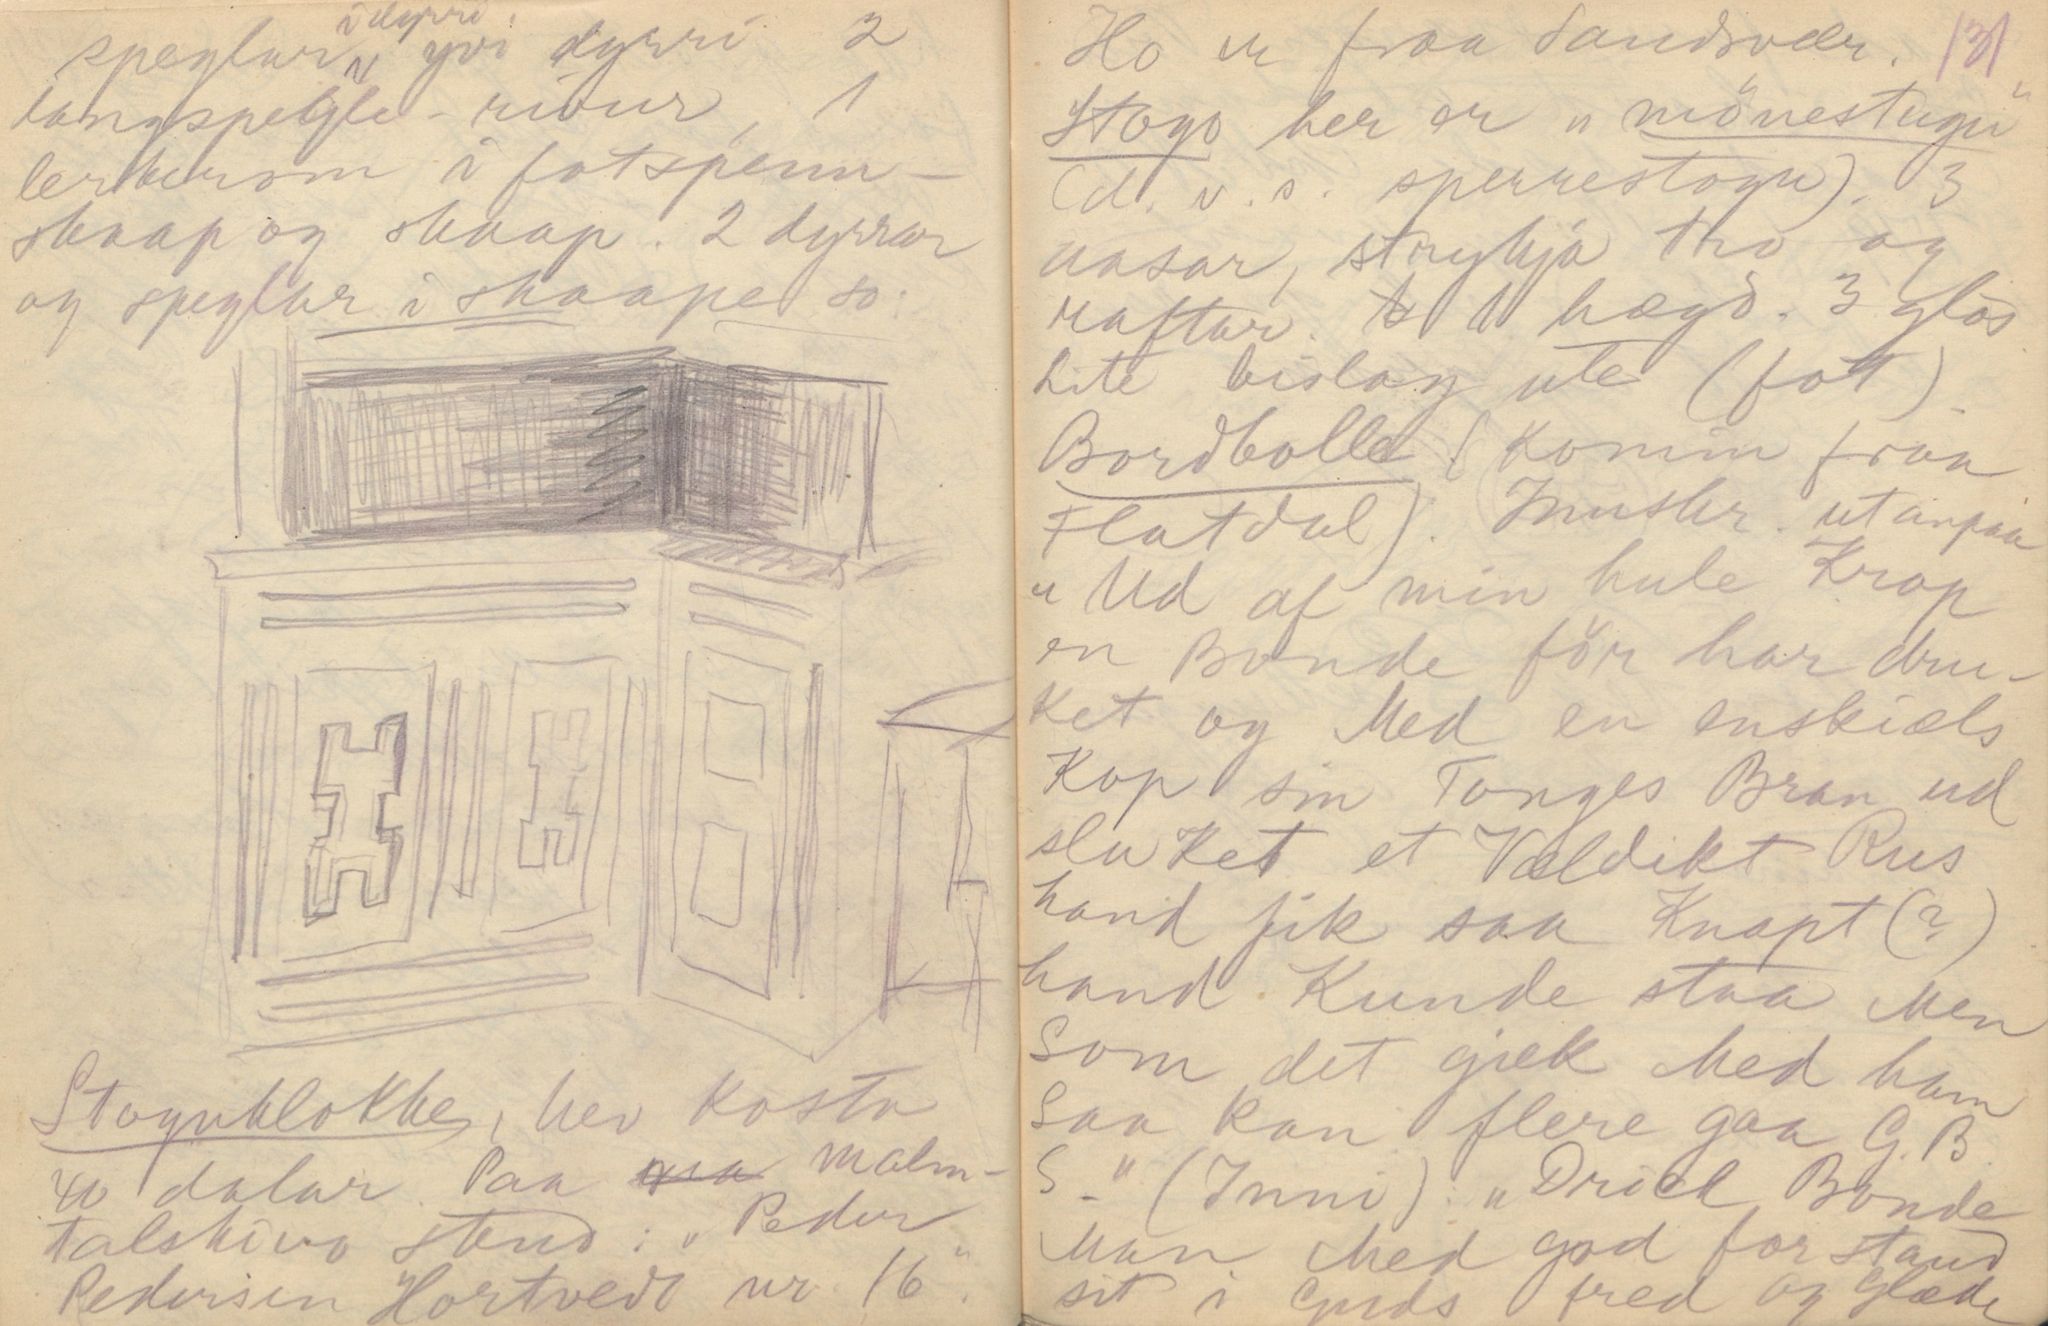 i dyrri.
speglar, yvi dyrri 2
langspegle-rivur, 1
lerkurom i fotspenn-
skaap og skaap. 2 dyrrar
og speglar i skaape so:
Stogukloкke, hev kosta
40 dalar. Paa malm-
talskiva stend: "Peder
Pedersen Hortvedt nr. 16".
Ho er fraa Sandsvær. 131
Stogo her er "mönestugu"
(d. v. s. sperrestogu). 3
aasar, strykja tro og
raftar. 1 hægd. 3 glas
Lite bislag ute (fot).
Bordbolle (Komin fraa
Flatdal). Innskr. utanpaa
"Ud af min hule Krop
en Bonde för har dru-
ket og Med en enskiæls
Kop sin Tonges Bran ud
sluket et Vældikt Rus
hand fik saa Knapt (?)
hand Kunde staa Men
Som det gjek Med ham
Saa kan flere gaa G. B.
S-" (Inni): "Drick Bonde
Man Med god forstand
sit i Guds fred og Glæde